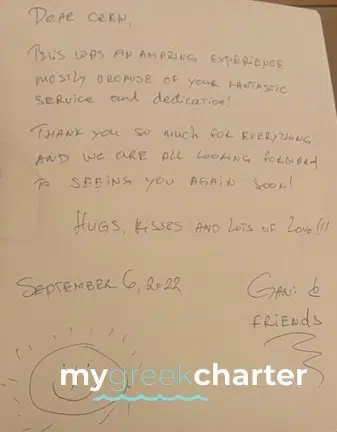 DEAR CREW,
THIS WAS AN AMAZING EXPERIENCE
MOSTLY BECAUSE OF YOUR FANTASTIC
SERVICE and dedication!
THANK YOU SO much FOR EVERYTHING
AND WE ARE ALL LOOKING FORWARD
TO SEEING YOU AGAIN SOON!
HUGS, KISSES AND LOTS OF LOVE!!!
SEPTEMBER 6, 2022
GANI &
FRIENDS
mygreekcharter